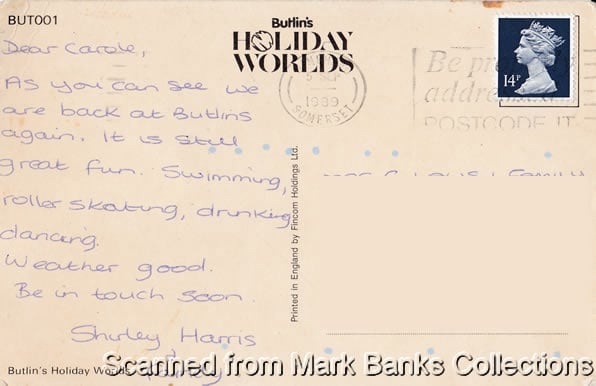 BUT001
Butlin's
HOLIDAY
WORLDS
14P
1989
SOMERSET
Be
addre
POSTCODE IT
Dear Carole,
As you can see we
are back at Butlins
again. It is still
great fun. Swimming,
roller skating, drinking
dancing.
Weather good.
Be in touch soon.
Shirley Harris
Printed in England by Fincom Holdings Ltd.
Butlin's Holiday Worlds
Scanned from Mark Banks Collections